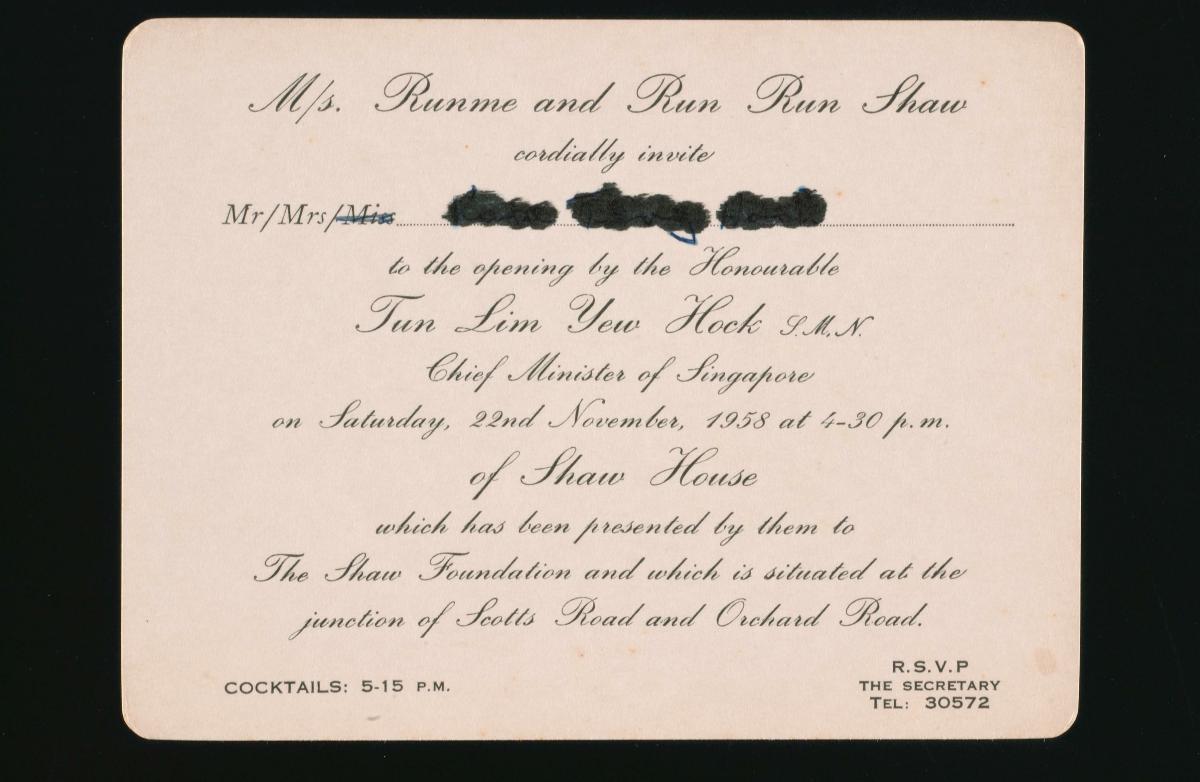 M/s. Runme and Run Run Shaw
cordially invite
Mr/Mrs/Miss
to the opening by the Honourable
Tun Lim Yew Hock S.M.N.
Chief Minister of Singapore
on Saturday, 22nd November, 1958 at 4-30 p.m.
of Shaw House
which has been presented by them to
The Shaw Foundation and which is situated at the
junction of Scotts Road and Orchard Road.
COCKTAILS: 5-15 P.M.
R.S.V.P
THE SECRETARY
TEL: 30572